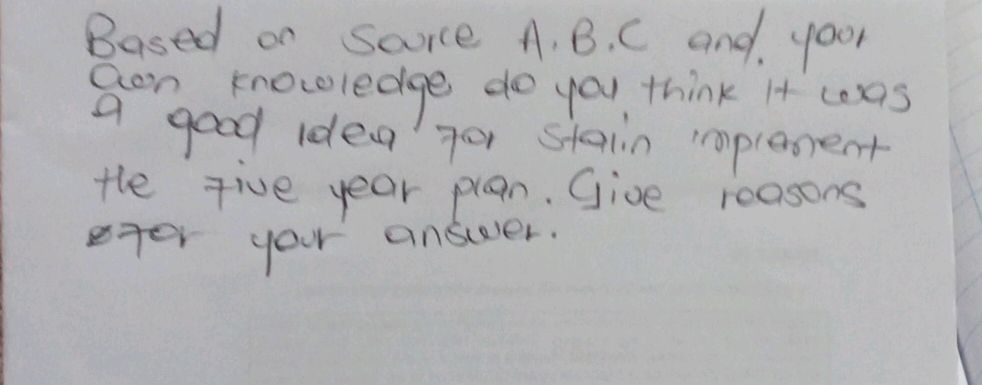 Based on Source A.B.C and your
own knowledge do you think it was
a good idea for Stalin implement
the five year plan. Give reasons
for your answer.